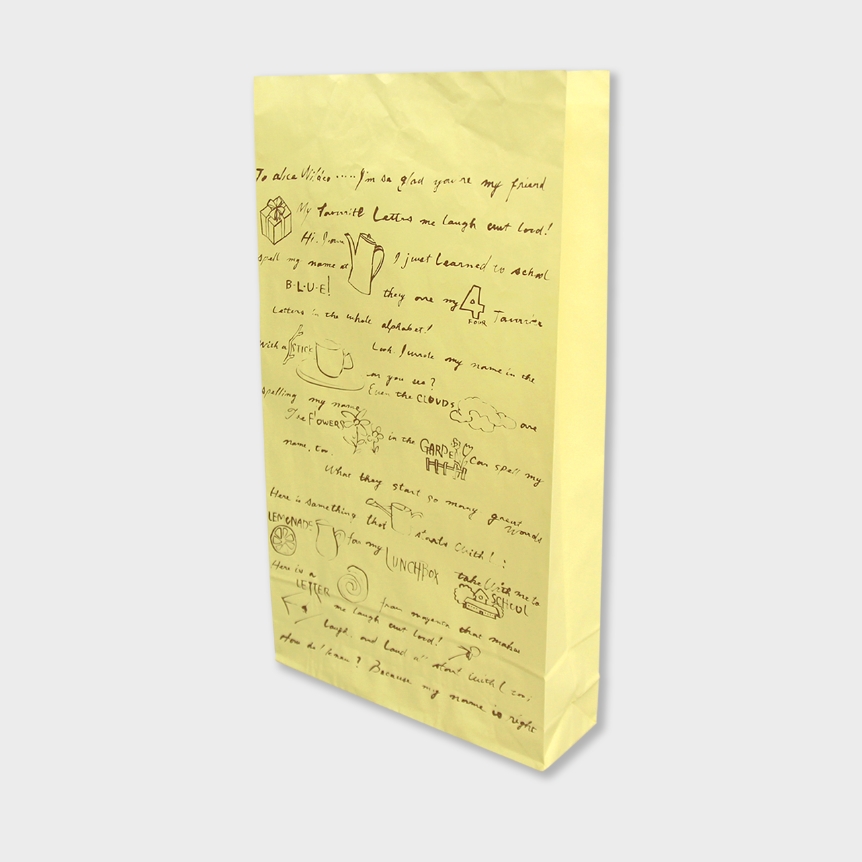 To alice Wilder.....I'm so glad you're my friend
My favorite Letters me laugh out loud!
Hi. I am I just Learned to school
spell my name at
B·L·U·E! they are my 4 Favorite
FOUR
Letters in the whole alphabet!
With a STICK Look. I made my name in the
can you see?
Even the CLOUDS are
spelling my name
The FLOWERS in the GARDEN Can spell my
name, too.
What they start so many great
words
Here is something that starts with l:
LEMONADE for my LUNCHBOX take with me to
SCHOOL
Here is a
LETTER from magenta that makes
me laugh out loud!
Laugh, and Loud all start with l too;
How do I know? Because my name is right